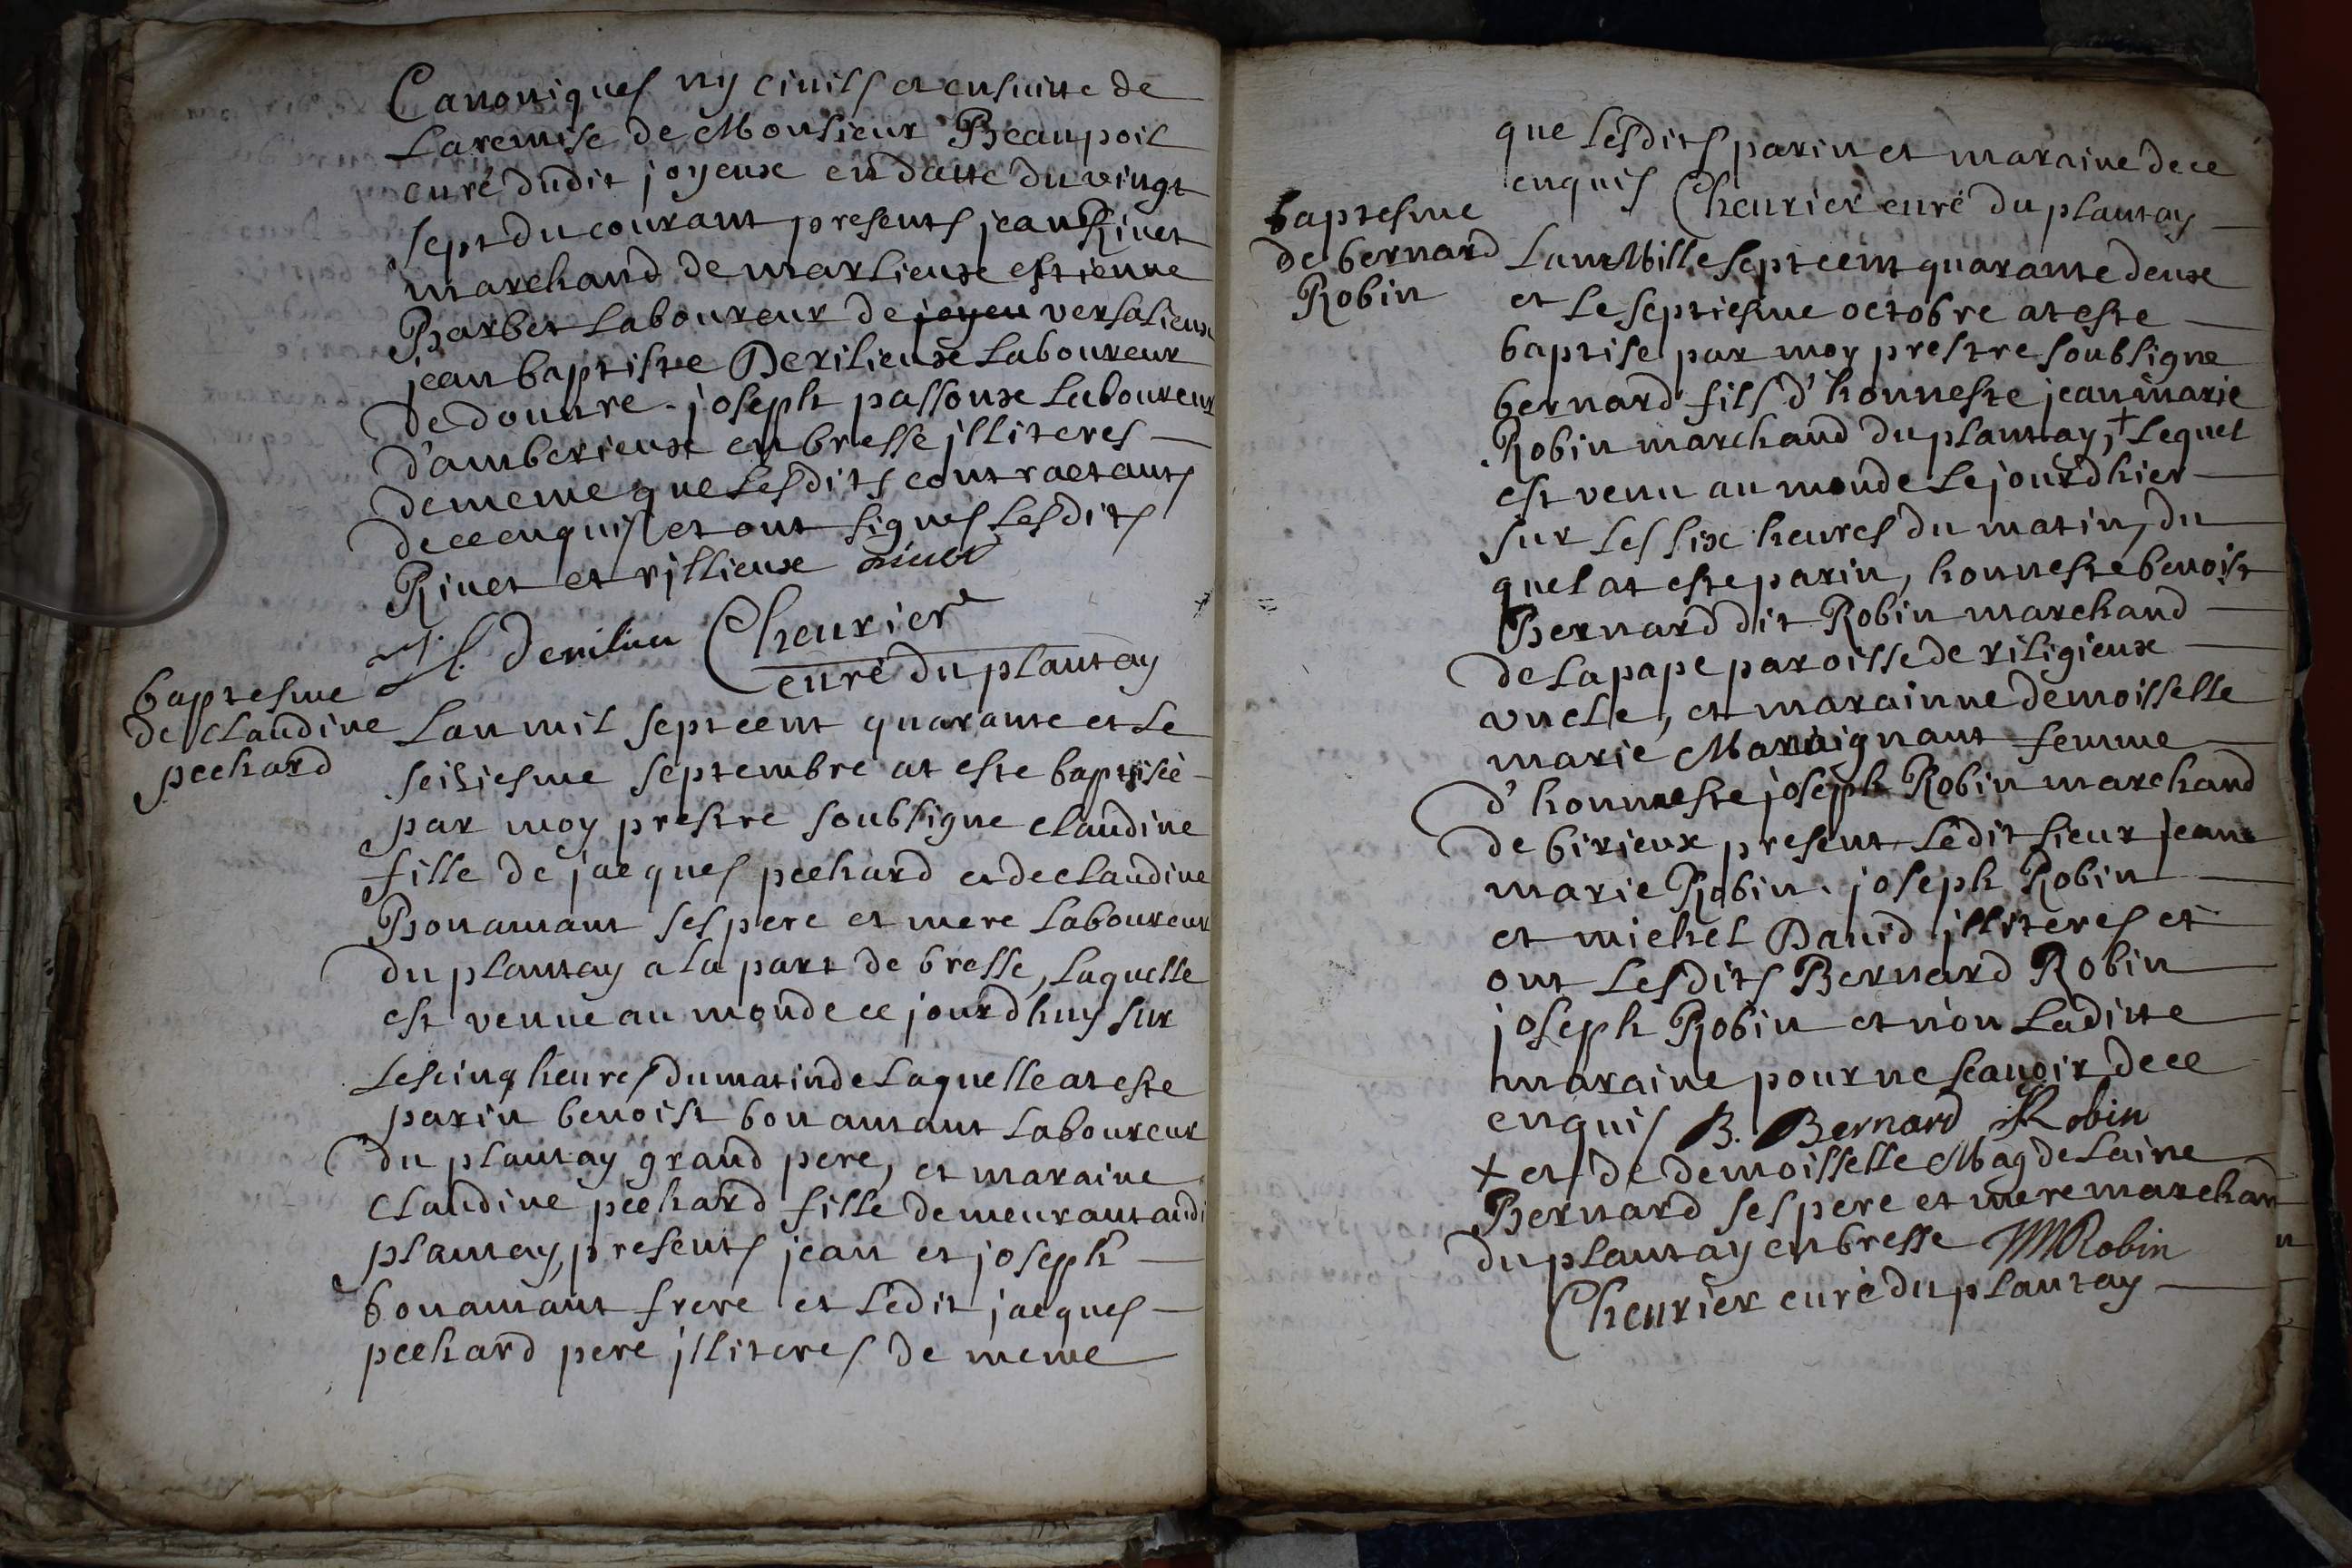 Canoniques ny ciuils et ensuitte de
La remise de Monsieur Beaupoil
curé dudit joyeux en datte du vingt
sept du courant presents jean Riuet
marchand de marlieux estienne
Barbet Laboureur de joyeu versalieux
jean baptiste Derilieux Laboureur
de dounre. joseph passoux Laboureur
d'amberieux en bresse jlliteres
de meme que Lesdits contractants
de ce enquis et ont signes Lesdits
Riuet et rillieux riuet
derilieu Cheurier
curé du plantay
baptesme
de Claudine
pechard
Lan mil sept cent quarante et Le
seiziesme septembre at este baptisée
par moy prestre soubsigne claudine
fille de jacques pechard et de claudine
Bonamant ses pere et mere Laboureur
du plantay a la part de bresse, Laquelle
est venue au monde ce jourdhuy sur
Les cinq heures du matin de Laquelle at este
parin benoist bonamant Laboureur
du plantay grand pere, et maraine
Claudine pechard fille demeurant audi
plantay, presents jean et joseph
bonamant frere et Ledit jacques
pechard pere jlliteres de meme
que Lesdits parin et maraine de ce
enquis Cheurier curé du plantay
baptesme
de bernard
Robin
Lan Mille sept cent quarante deux
et Le septiesme octobre at este
baptise par moy prestre soubsigne
bernard fils d'honneste jean marie
Robin marchand du plantay, + Lequel
est venu au monde Le jourdhier
sur Les six heures du matin, du
quel at este parin, honneste benoist
Bernard dit Robin marchand
de Lapape paroisse de riligieux
oncle, et marainne demoisselle
marie Maraignant femme
d'honneste joseph Robin marchand
de birieux present Ledit sieur jean
marie Robin. joseph Robin
et michel Dauid jlliteres et
ont Lesdits Bernard Robin
joseph Robin et non Laditte
maraine pour ne scauoir de ce
enquis B. Bernard Robin
+ et de demoisselle Magdelaine
Bernard ses pere et mere marchan
du plantay en bresse JMRobin
Cheurier curé du plantay